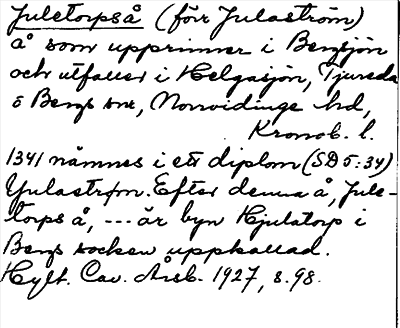 Juletorpså (förr Julaström)
å som upprinner i Bergsjön
och utfaller i Helgasjön, Tjureda
o Bergs snr, Norrvidinge hd,
Kronob. l.
1341 nämnes i ett diplom (SD 5:34)
Yulastrøm. Efter denna å, Jule-
torps å, --- är byn Hjulatorp i
Bergs socken uppkallad.
Hylt. Cav. Årsb. 1927, s. 98.